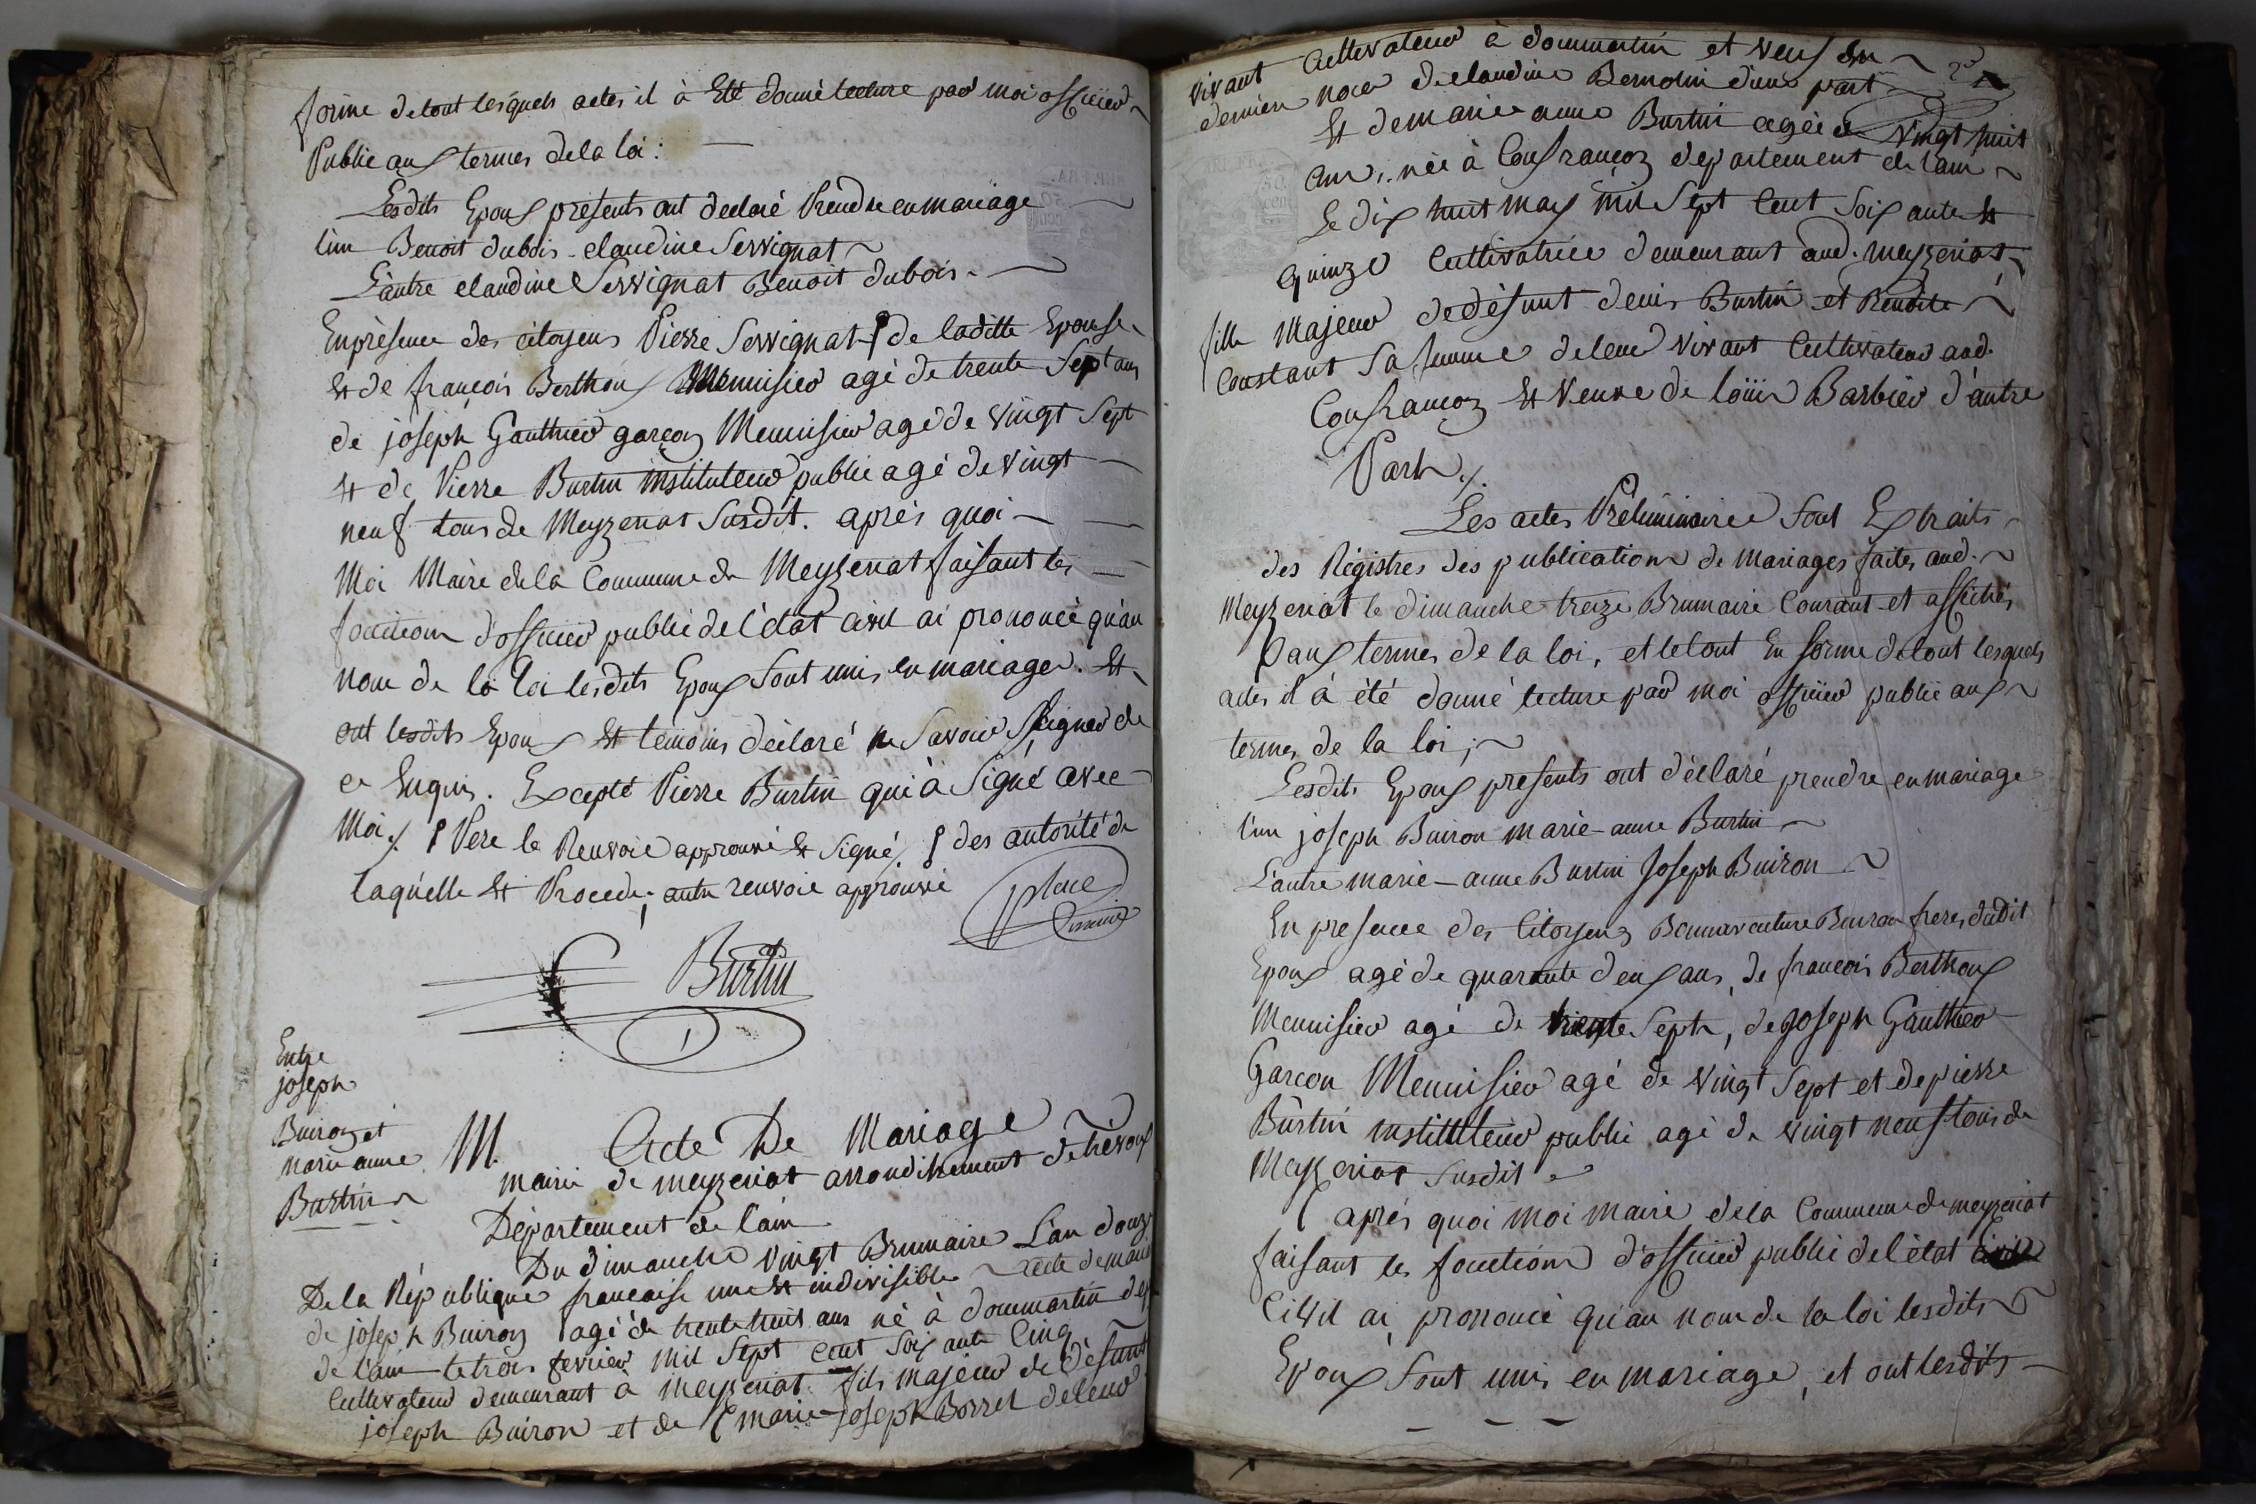 forme detout lesquels actes il à Eté donné lecture par moi officier
Public aux termes dela loi :
Lesdits Epoux présents ont declaré Prendre en mariage
l'un Benoit dubois - claudine Servignat
L'autre claudine Servignat Benoit dubois -
En présence des citoyens Pierre Servignat de laditte Epouse
Et de françois Berthoux Menuisier agé de trente Sept ans
de joseph Gauthier garçon Menuisier agé de vingt Sept
Et de Pierre Burtin instituteur public agé de vingt
neuf tous de Meyzeriat Susdit. après quoi
Moi Maire dela Commune de Meyzeriat faisant les
fonctions d'officier public de l'état civil ai prononcé qu'au
nom de la loi lesdits Epoux sont unis en mariage. Et
ont lesdits Epoux Et témoins déclaré ne Savoir Signer de
ce Enquis. Excepté Pierre Burtin qui à Signé avec
Moi /. Pere le Renvoie approuvé Et Signé. des autorité de
laquelle Et Procede ; autre renvoie approuvé
place
maire
Burtin
Entre
joseph
Buiron et
marie anne
Burtin
M. Acte De Mariage
mairie de meyzeriat arrondissement de trévoux
Département de l'ain
Du dimanche vingt Brumaire L'an douze
De la République francaise une Et indivisible acte de mariage
de joseph Buiron agé de trente huit ans né à dommartin dep
de l'ain le trois fevrier Mil Sept cent Soixante Cinq
Cultivateur demeurant à Meyzeriat fils majeur de défunt
joseph Buiron et de marie joseph Borrel de leur
vivant Cultivateur à dommartin et veuf en
derniere noce de claudine Bernolin d'une part
Et de marie anne Burtin agée de vingt huit
ans, née à Confrançon departement de l'ain
Le dix huit may mil Sept Cent Soixante Et
quinze Cultivatrice demeurant aud. meyzeriat
fille Majeur de défunt denis Burtin et Benoite
Constant Sa femme de leur vivant Cultivateur aud.
Confrançon Et Veuve de loüis Barbier d'autre
Part /.
Les actes Préliminaires sont Extraits
des Régistres des publications de mariages faites aud.
Meyzeriat le dimanche treize Brumaire Courant et affichés
aux termes de la loi, et le tout En forme detout lesquels
actes il à été donné lecture par moi officier public aux
termes de la loi ;
Lesdits Epoux présents ont déclaré prendre en mariage
l'un joseph Buiron marie-anne Burtin
L'autre marie-anne Burtin Joseph Buiron
En presence des Citoyens Bonnaventure Buiron freres dudit
Epoux agé de quarante deux ans, de françois Berthoux
Menuisier agé de trente Sept, de Joseph Gauthier
Garcon Menuisier agé de vingt Sept et de pierre
Burtin instituteur public agé de vingt neuf tous de
Meyzeriat Susdit
après quoi moi maire dela Commune de meyzeriat
faisant les fonctions d'officier public de l'état
Civil ai prononcé qu'au nom de la loi lesdits
Epoux Sont unis en mariage, et ont lesdits